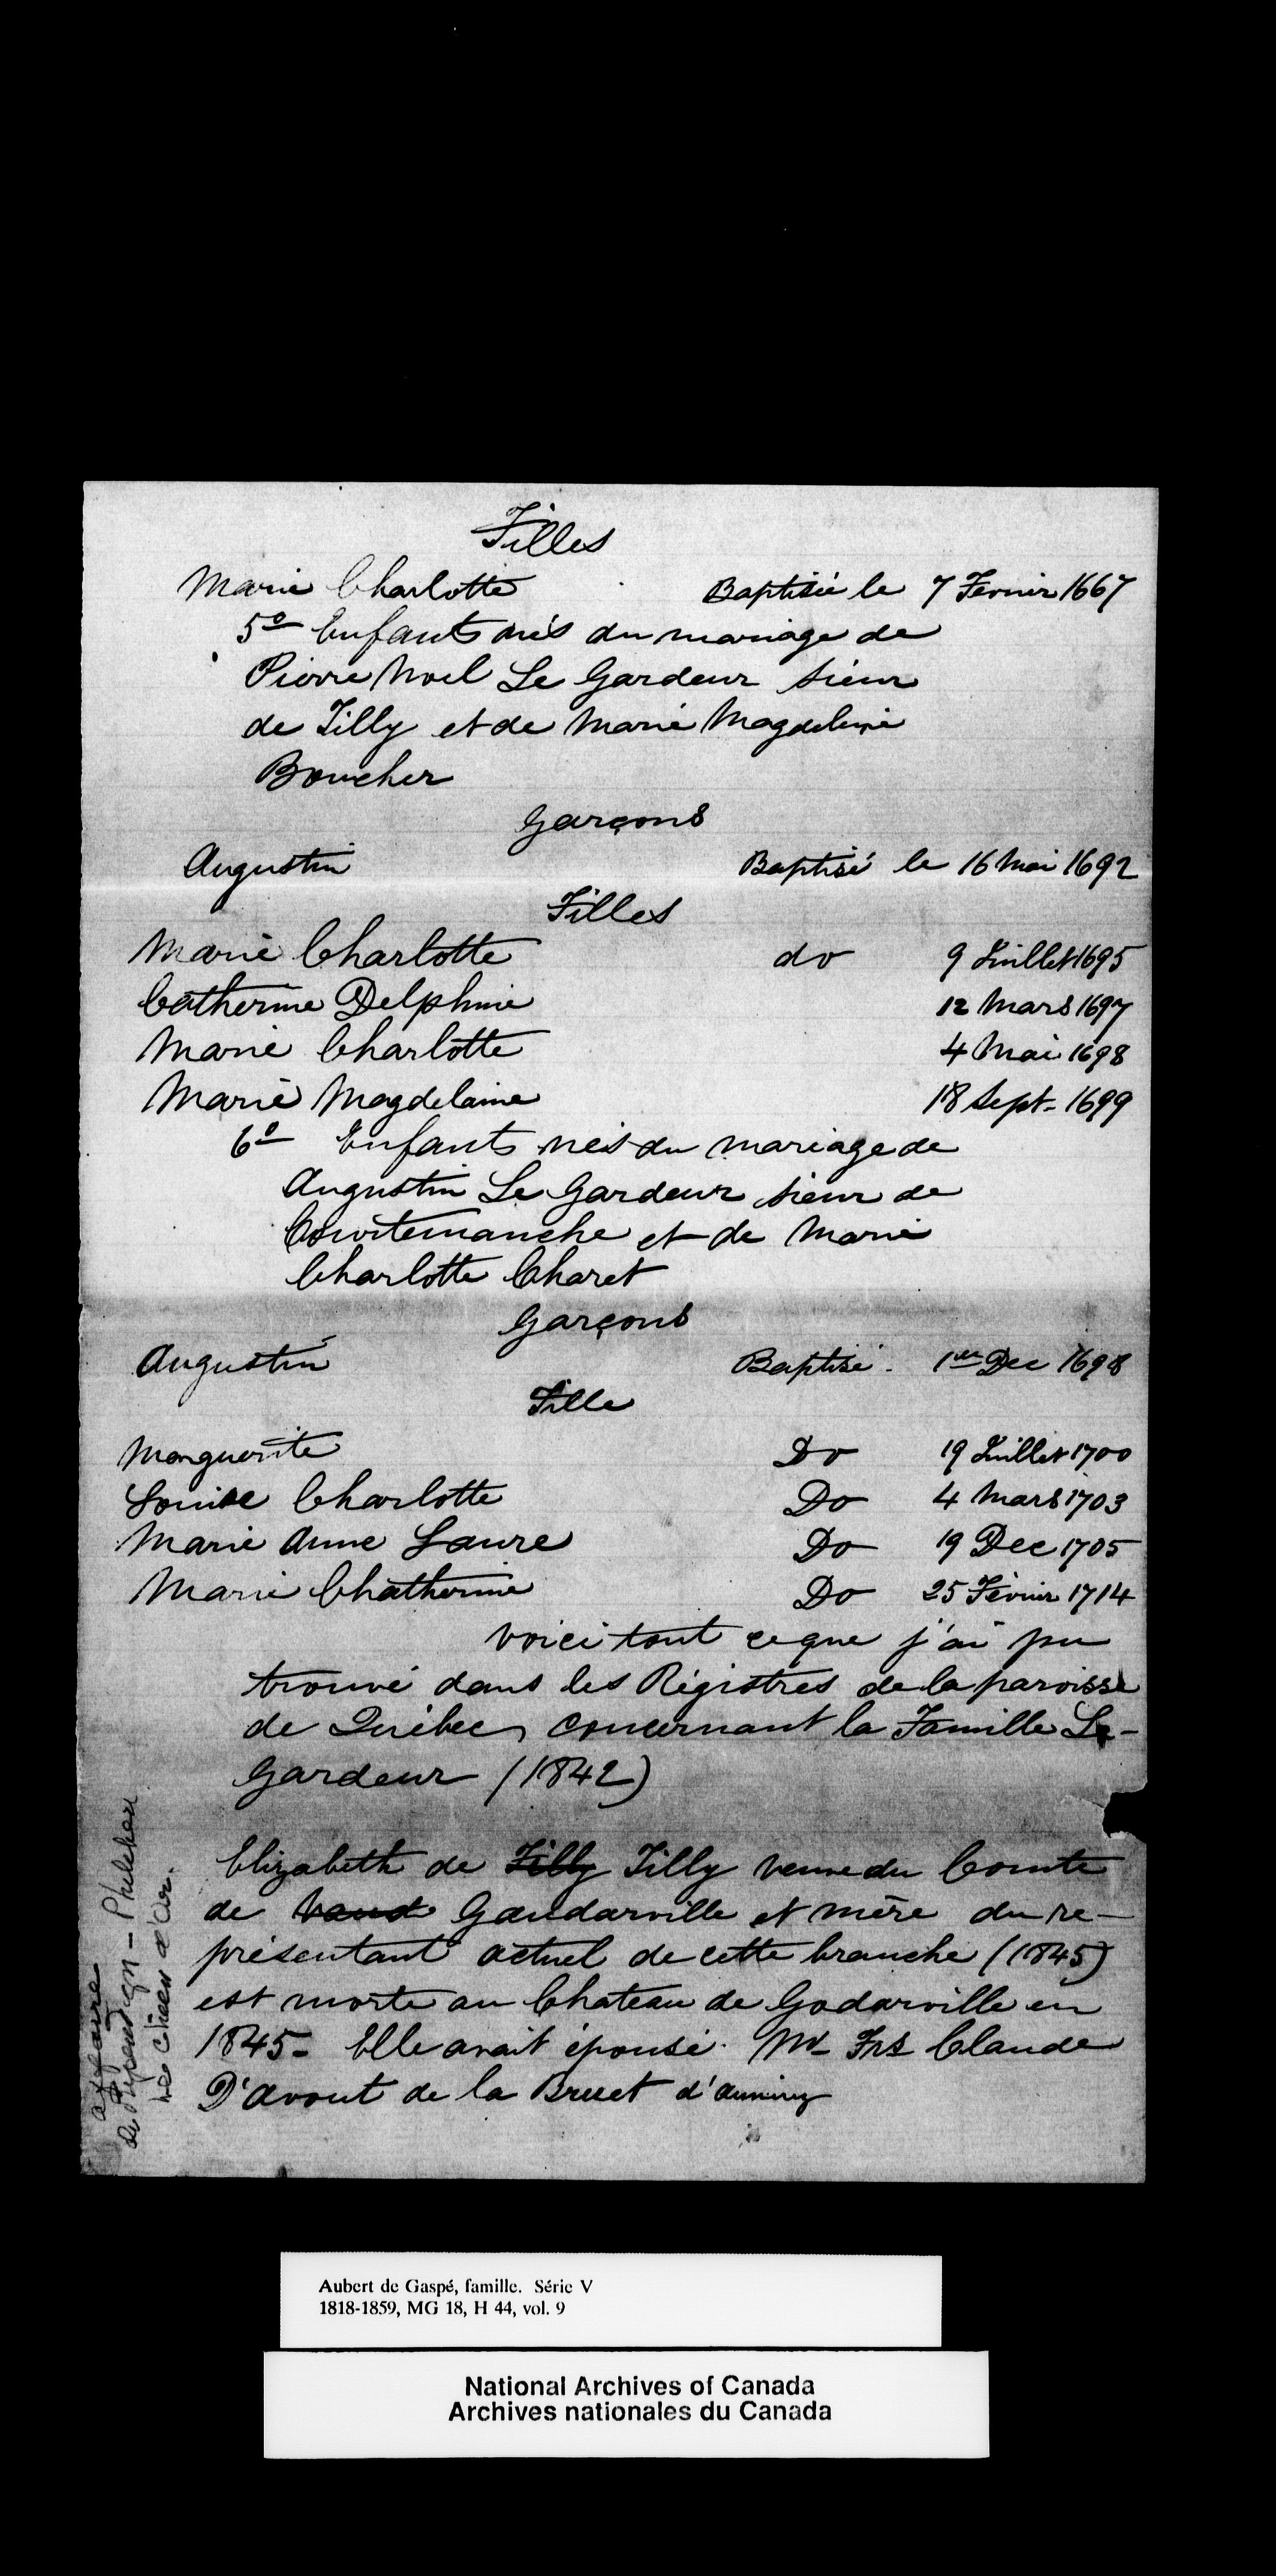 Filles
Marie Charlotte Baptisée le 7 Fevrier 1667
5o Enfants nés du mariage de
Pierre Noel Le Gardeur sieur
de Tilly et de Marie Magdeleine
Boucher
Garçons
Augustin Baptisé le 16 Mai 1692
Filles
Marie Charlotte do 9 Juillet 1695
Catherine Delphine 12 Mars 1697
Marie Charlotte 4 Mai 1698
Marie Magdelaine 18 Sept. 1699
6o Enfants nés du mariage de
Augustin Le Gardeur sieur de
Courtemanche et de Marie
Charlotte Charet
Garçons
Augustin Baptisé. 1er Dec 1698
Fille
Marguerite Do 19 Juillet 1700
Louise Charlotte Do 4 Mars 1703
Marie Anne Laure Do 19 Dec 1705
Marie Chatherine Do 25 Février 1714
Voici tout ce que j'ai pu
trouvé dans les Régistres de la paroisse
de Québec, concernant la Famille Le-
Gardeur (1842)
Elizabeth de Tilly Tilly veuve du Comte
de Gaudarville et mère du re-
présentant actuel de cette branche (1845)
est morte au Chateau de Godarville en
1845- Elle avait épousé. Mr Frs Claude
D'avout de la Bruet
affaire
de Repentign - Philibert
Le Chien d'Or.
Aubert de Gaspé, famille. Série V
1818-1859, MG 18, H 44, vol. 9
National Archives of Canada
Archives nationales du Canada